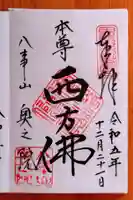 奉拝
令和五年
十二月二十一日
本尊
西方佛
八事山
奥之院